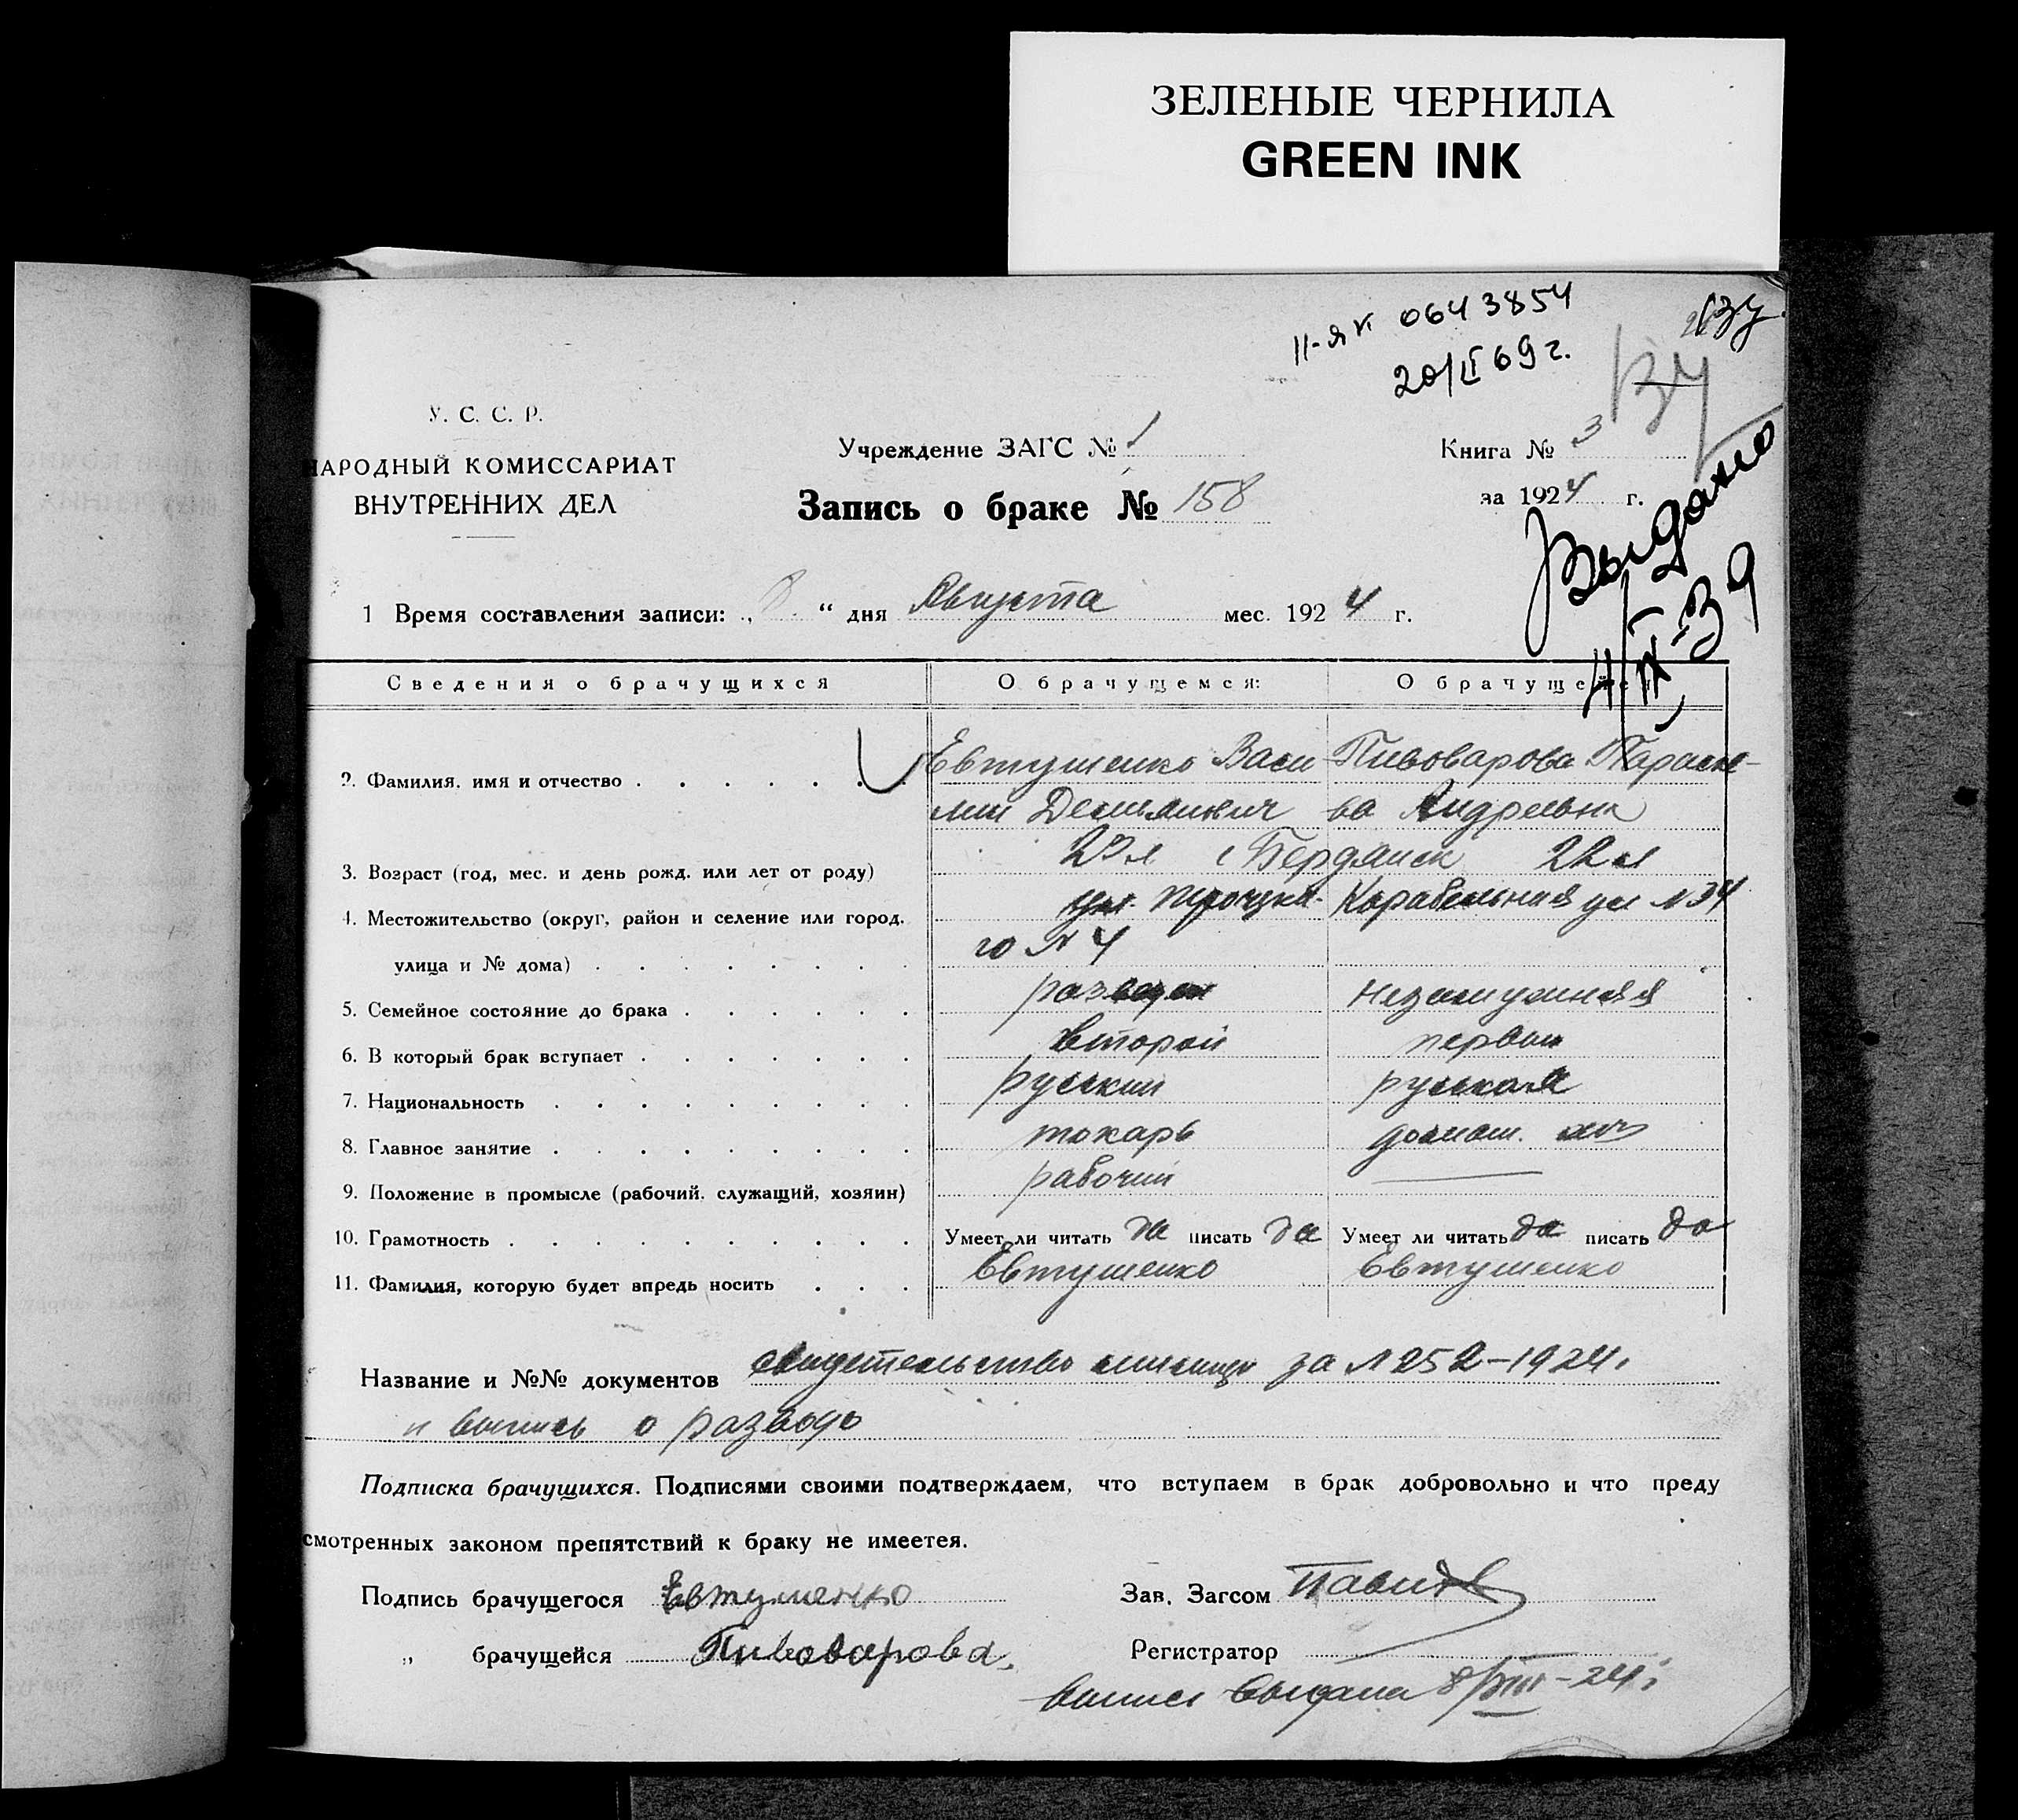 ЗЕЛЕНЫЕ ЧЕРНИЛА
GREEN INK
II-ЯК 0643854
20/II 69 г.
137
137
У. С. С. Р.
НАРОДНЫЙ КОМИССАРИАТ
ВНУТРЕННИХ ДЕЛ
Учреждение ЗАГС № 1
Запись о браке № 158
Книга № 3
за 1924 г.
Выдано
1 Время составления записи: „ 8 “ дня Августа мес. 1924 г.
Сведения о брачущихся О брачущемся: О брачущейся
2. Фамилия, имя и отчество Евтушенко Васи- Пивоварова Параске-
лий Демьянович ва Андреевна
3. Возраст (год, мес. и день рожд. или лет от роду) г Бердянск 22 л
4. Местожительство (округ, район и селение или город, ул. Троцко- Корабельная ул № 34
улица и № дома) го № 4
5. Семейное состояние до брака развед незамужняя
6. В который брак вступает второй первый
7. Национальность русский русская
8. Главное занятие токарь домаш. хоз
9. Положение в промысле (рабочий, служащий, хозяин) рабочий —
10. Грамотность Умеет ли читать да писать да Умеет ли читать да писать да
11. Фамилия, которую будет впредь носить Евтушенко Евтушенко
Название и №№ документов свидетельство за № 252-1924.
и выпись о разводе
Подписка брачущихся. Подписями своими подтверждаем, что вступаем в брак добровольно и что преду
смотренных законом препятствий к браку не имеется.
Подпись брачущегося Евтушенко Зав. Загсом
„ брачущейся Пивоварова. Регистратор
выпись выдана 8/VIII-24 г.